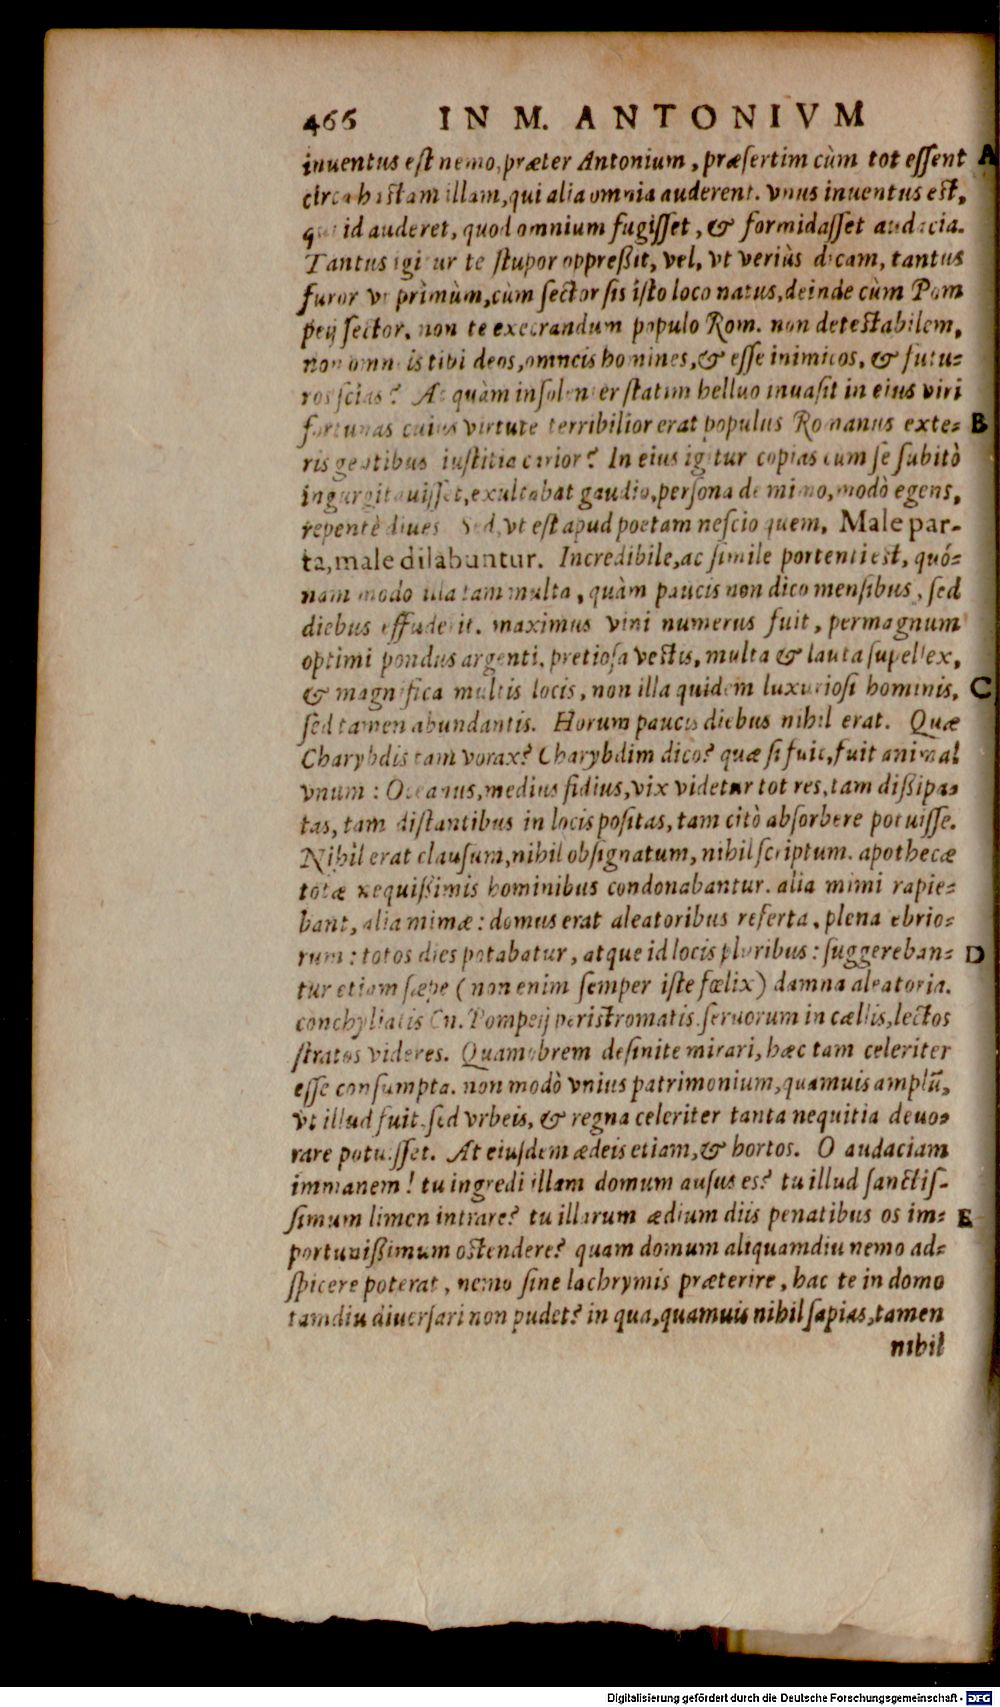 466 IN M. ANTONIVM
inuentus est nemo, præter Antonium, præsertim cùm tot essent A
circa hastam illam, qui alia omnia auderent. vnus inuentus est,
qui id auderet, quod omnium fugisset, & formidasset audacia.
Tantus igitur te stupor oppreßit, vel, vt veriùs dicam, tantus
furor vt primùm, cùm sector sis isto loco natus, deinde cùm Pom
peij sector, non te execrandum populo Rom. non detestabilem,
non omneis tibi deos, omneis homines, & esse inimicos, & futu-
ros scias? At quàm insolenter statim helluo inuasit in eius viri
fortunas cuius virtute terribilior erat populus Romanus exte- B
ris gentibus iustitia carior? In eius igitur copias cum se subitò
ingurgitauisset, exultabat gaudio, persona de mimo, modò egens,
repentè diues Sed, vt est apud poetam nescio quem, Male par-
ta, male dilabuntur. Incredibile, ac simile portenti est, quó-
nam modo illa tam multa, quàm paucis non dico mensibus, sed
diebus effuderit. maximus vini numerus fuit, permagnum
optimi pondus argenti, pretiosa vestis, multa & lauta supellex,
& magnifica multis locis, non illa quidem luxuriosi hominis, C
sed tamen abundantis. Horum paucis diebus nihil erat. Quæ
Charybdis tam vorax? Charybdim dico? quæ si fuit, fuit animal
vnum: Oceanus, medius fidius, vix videtur tot res, tam dißipa-
tas, tam distantibus in locis positas, tam citò absorbere potuisse.
Nihil erat clausum, nihil obsignatum, nihil scriptum. apothecæ
totæ nequißimis hominibus condonabantur. alia mimi rapie-
bant, alia mimæ: domus erat aleatoribus referta, plena ebrio-
rum: totos dies potabatur, atque id locis pluribus: suggereban- D
tur etiam sæpe (non enim semper iste fœlix) damna aleatoria.
conchyliatis Cn. Pompeij peristromatis seruorum in cællis, lectos
stratos videres. Quamobrem desinite mirari, hæc tam celeriter
esse consumpta. non modò vnius patrimonium, quamuis amplũ,
vt illud fuit, sed vrbeis, & regna celeriter tanta nequitia deuo-
rare potuisset. At eiusdem ædeis etiam, & hortos. O audaciam
immanem! tu ingredi illam domum ausus es? tu illud sanctis-
simum limen intrare? tu illarum ædium diis penatibus os im- E
portunißimum ostendere? quam domum aliquamdiu nemo ad-
spicere poterat, nemo sine lachrymis præterire, hac te in domo
tamdiu diuersari non pudet? in qua, quamuis nihil sapias, tamen
nihil
Digitalisierung gefördert durch die Deutsche Forschungsgemeinschaft - DFG